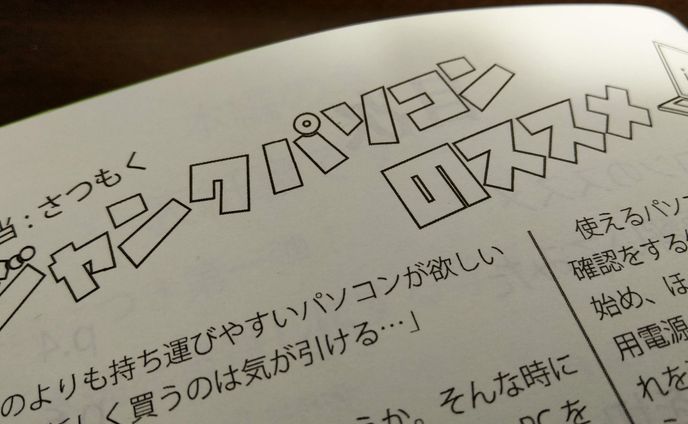 当：さつもく
ジャンクパソコン
のススメ
のよりも持ち運びやすいパソコンが欲しい
しく買うのは気が引ける…」
うか。そんな時に
PCを
使えるパソコ
確認をする
始め、ほ
用電源
れを